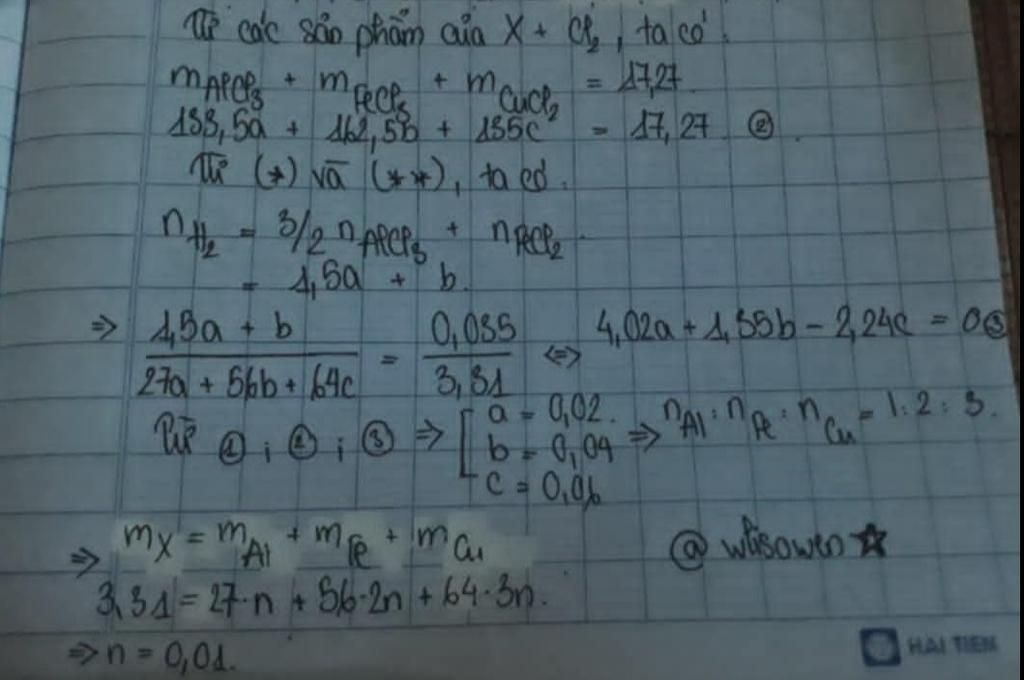 Từ các sản phẩm của X + Cl₂, ta có:
m_AlCl₃ + m_FeCl₃ + m_CuCl₂ = 17,27
133,5a + 162,5b + 135c = 17,27 ②.
Từ (*) và (**), ta có:
n_H₂ = 3/2 n_AlCl₃ + n_FeCl₂.
= 1,5a + b.
⇒ (1,5a + b)/(27a + 56b + 64c) = 0,035/3,31 ⇔ 4,02a + 1,35b - 2,24c = 0 ③
Từ ① ; ② ; ③ ⇒ [ a = 0,02. b = 0,04 c = 0,06 ⇒ n_Al : n_Fe : n_Cu = 1 : 2 : 3.
⇒ m_X = m_Al + m_Fe + m_Cu
@ wlisowen ☆
3,31 = 27·n + 56·2n + 64·3n.
⇒ n = 0,01.
HAI TIEN